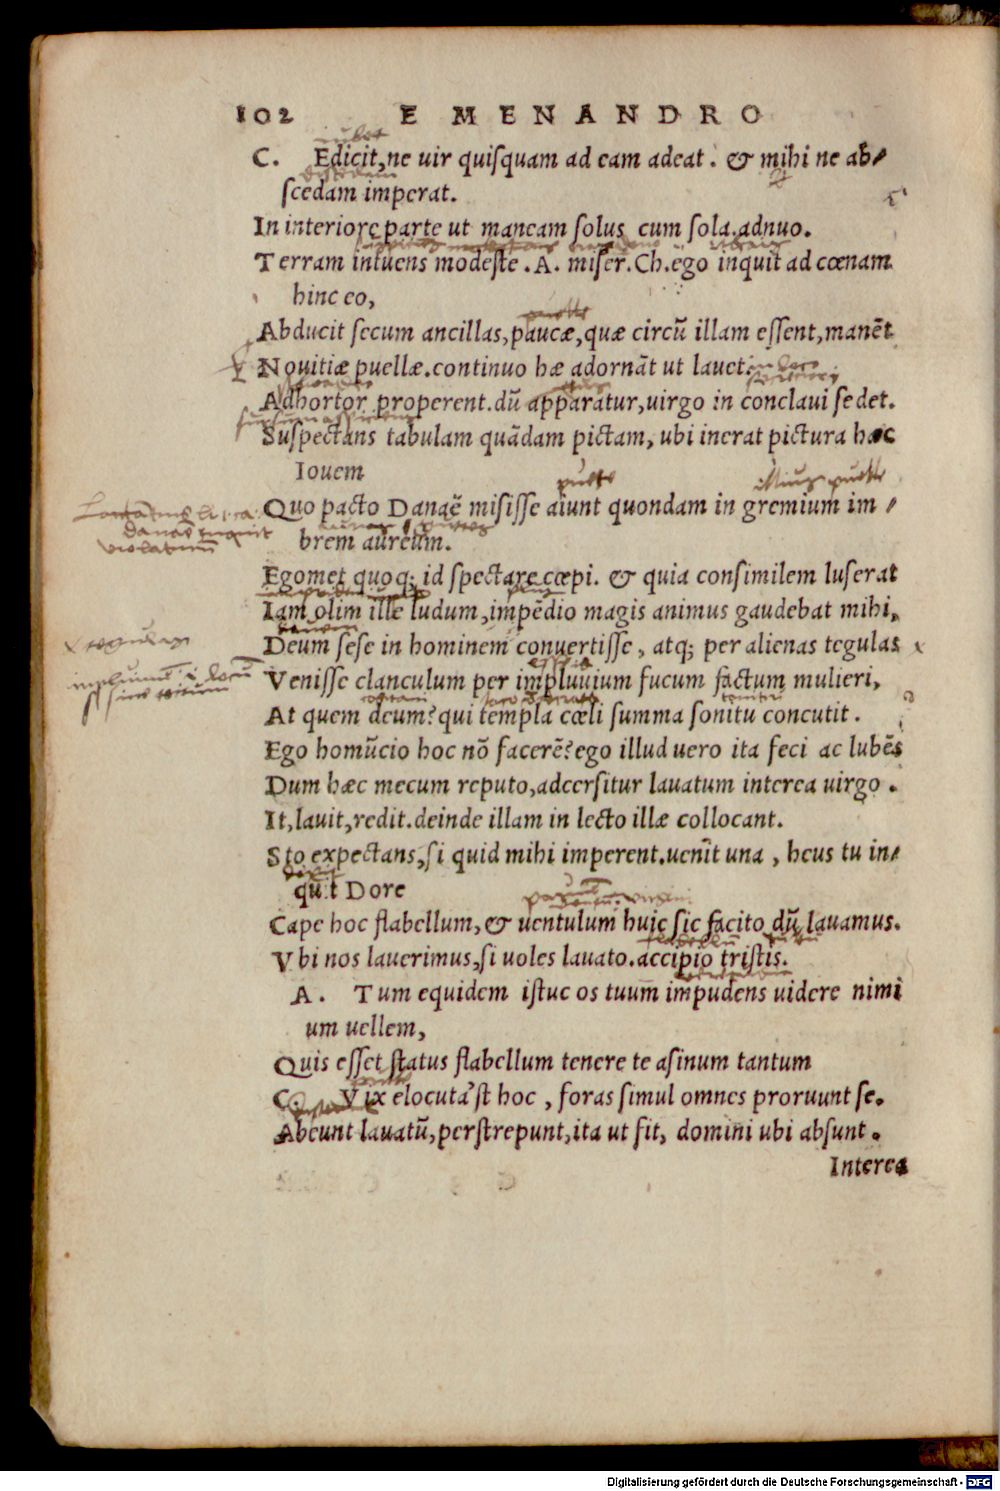 102 E MENANDRO
iubet
C. Edicit, ne uir quisquam ad eam adeat. & mihi ne ab⸗
scedam imperat.
In interiore parte ut maneam solus cum sola. adnuo.
Terram intuens modeste. A. miser. Ch. ego inquit ad cœnam
hinc eo,
Abducit secum ancillas, paucæ, quæ circũ illam essent, manẽt
Nouitiæ puellæ. continuo hæ adornãt ut lauet.
Adhortor properent. dũ apparatur, uirgo in conclaui sedet.
Suspectans tabulam quãdam pictam, ubi inerat pictura hæc
Iouem
puelle
Quo pacto Danaẽ misisse aiunt quondam in gremium im⸗
brem aureum.
violatum
Egomet quoq; id spectare cœpi. & quia consimilem luserat
Iam olim ille ludum, impẽdio magis animus gaudebat mihi,
Deum sese in hominem conuertisse, atq; per alienas tegulas
Venisse clanculum per impluuium fucum factum mulieri,
At quem deum? qui templa cœli summa sonitu concutit.
Ego homũcio hoc nõ facerẽ? ego illud uero ita feci ac lubẽs
Dum hæc mecum reputo, adcersitur lauatum interea uirgo.
It, lauit, redit. deinde illam in lecto illæ collocant.
Sto expectans, si quid mihi imperent. uenit una, heus tu in⸗
quit Dore
Cape hoc flabellum, & uentulum huic sic facito dũ lauamus.
Vbi nos lauerimus, si uoles lauato. accipio tristis.
A. Tum equidem istuc os tuum impudens uidere nimi
um uellem,
Quis esset status flabellum tenere te asinum tantum
C. Vix elocuta'st hoc, foras simul omnes proruunt se.
Abeunt lauatũ, perstrepunt, ita ut fit, domini ubi absunt.
Interea
Digitalisierung gefördert durch die Deutsche Forschungsgemeinschaft - DFG